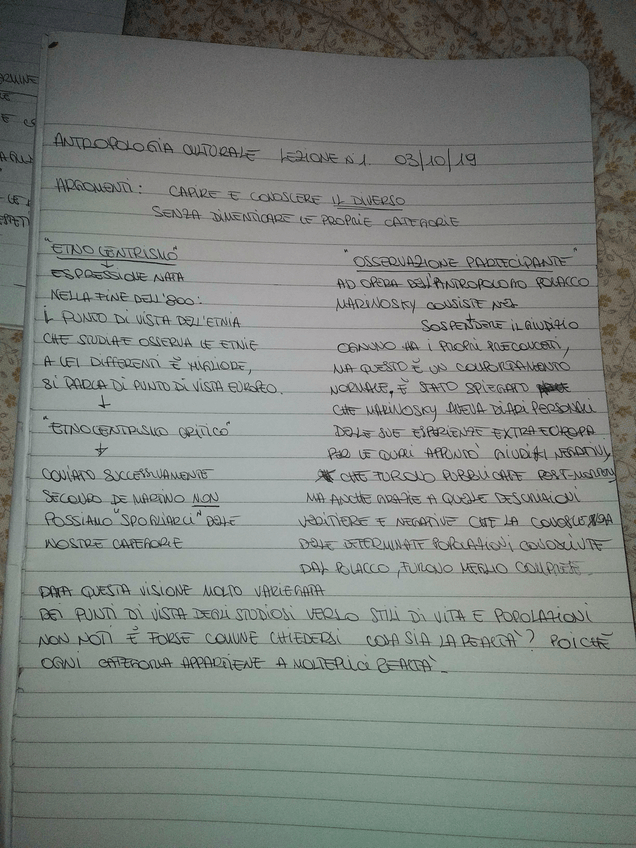 ANTROPOLOGIA CULTURALE LEZIONE N1. 03/10/19
ARGOMENTI: CAPIRE E CONOSCERE IL DIVERSO
SENZA DIMENTICARE LE PROPRIE CATEGORIE
"ETNOCENTRISMO"
↓
ESPRESSIONE NATA
NELLA FINE DELL'800:
IL PUNTO DI VISTA DELL'ETNIA
CHE STUDIA E OSSERVA LE ETNIE
A LEI DIFFERENTI È MIGLIORE,
SI PARLA DI PUNTO DI VISTA EUROPEO.
↓
"ETNOCENTRISMO CRITICO"
↓
CONIATO SUCCESSIVAMENTE
SECONDO DE MARTINO NON
POSSIAMO "SPOGLIARCI" DELLE
NOSTRE CATEGORIE
"OSSERVAZIONE PARTECIPANTE"
AD OPERA DELL'ANTROPOLOGO POLACCO
MARINOSKY CONSISTE NEL
↓
SOSPENDERE IL GIUDIZIO
OGNUNO HA I PROPRI PRECONCETTI,
MA QUESTO È UN COMPORTAMENTO
NORMALE, È STATO SPIEGATO
CHE MARINOSKY AVEVA DIARI PERSONALI
DELLE SUE ESPERIENZE EXTRA EUROPA
PER LE QUALI APPUNTÒ GIUDIZI NEGATIVI,
CHE FURONO PUBBLICATE POST-MORTEM
MA ANCHE GRAZIE A QUELLE DESCRIZIONI
VERITIERE E NEGATIVE CHE LA
DELLE DETERMINATE POPOLAZIONI, CONOSCIUTE
DAL POLACCO, FURONO MEGLIO COMPRESE.
DATA QUESTA VISIONE MOLTO VARIEGATA
DEI PUNTI DI VISTA DEGLI STUDIOSI VERSO STILI DI VITA E POPOLAZIONI
NON NOTI È FORSE COMUNE CHIEDERSI COSA SIA LA REALTÀ? POICHÈ
OGNI CATEGORIA APPARTIENE A MOLTEPLICI REALTÀ.